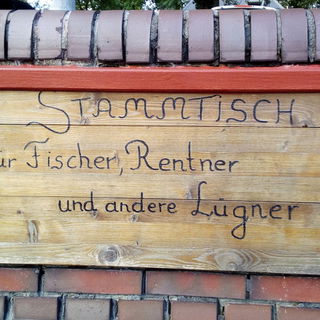 STAMMTISCH
ür Fischer, Rentner
und andere Lügner